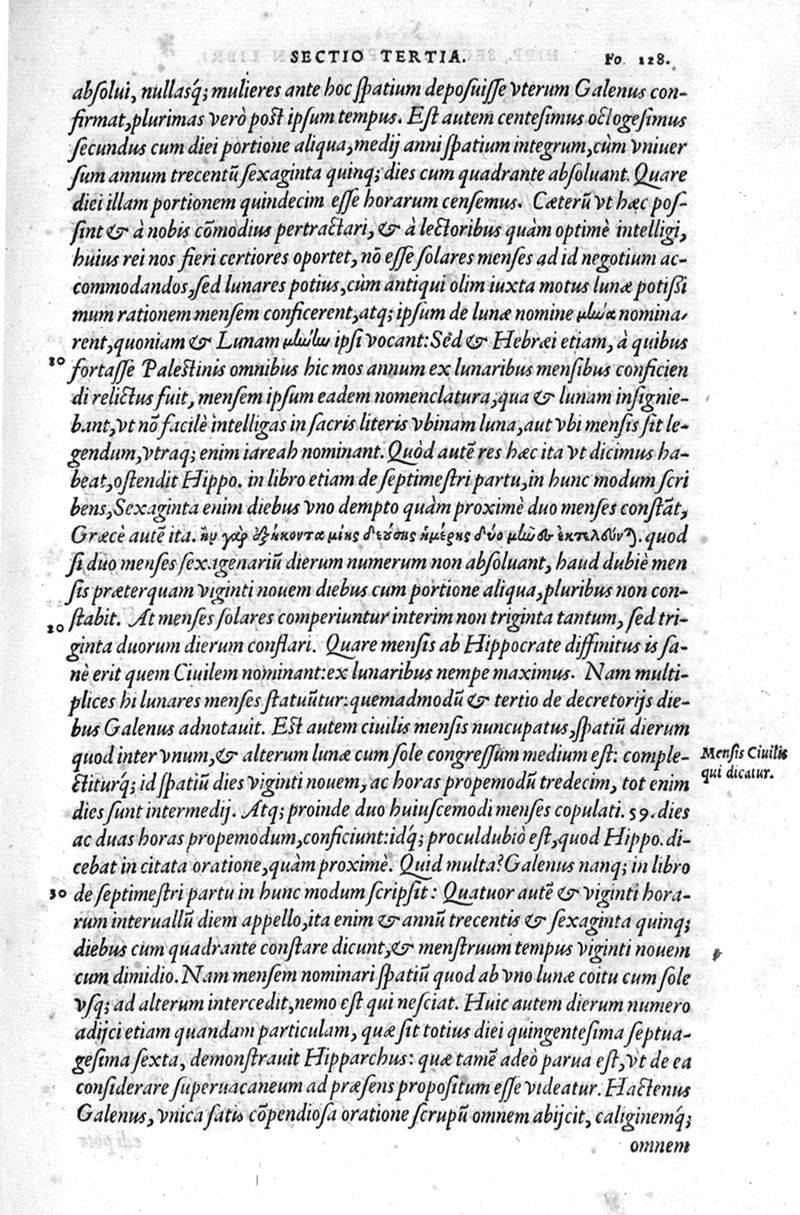 SECTIO TERTIA. Fo. 128.
absolui, nullasq́; mulieres ante hoc spatium deposuisse vterum Galenus con-
firmat, plurimas verò post ipsum tempus. Est autem centesimus octogesimus
secundus cum diei portione aliqua, medij anni spatium integrum, cùm vniuer
sum annum trecentũ sexaginta quinq; dies cum quadrante absoluant. Quare
diei illam portionem quindecim esse horarum censemus. Cæterũ vt hæc pos-
sint & à nobis cõmodius pertractari, & à lectoribus quàm optimè intelligi,
huius rei nos fieri certiores oportet, nõ esse solares menses ad id negotium ac-
commodandos, sed lunares potius, cùm antiqui olim iuxta motus lunæ potissi
mum rationem mensem conficerent, atq; ipsum de lunæ nomine μῆνα nomina-
rent, quoniam & Lunam μήνην ipsi vocant: Sed & Hebræi etiam, à quibus
10 fortasse Palestinis omnibus hic mos annum ex lunaribus mensibus conficien
di relictus fuit, mensem ipsum eadem nomenclatura, qua & lunam insignie-
bant, vt nõ facilè intelligas in sacris literis vbinam luna, aut vbi mensis sit le-
gendum, vtraq; enim iareah nominant. Quòd autẽ res hæc ita vt dicimus ha-
beat, ostendit Hippo. in libro etiam de septimestri partu, in hunc modum scri
bens, Sexaginta enim diebus vno dempto quàm proximè duo menses constãt,
Græcè autẽ ita. ἢν γὰρ ἑξήκοντα μιῆς δεούσης ἡμέρης δύο μῆνες ἐκτελοῦνται. quod
si duo menses sexagenariũ dierum numerum non absoluant, haud dubiè men
sis præterquam viginti nouem diebus cum portione aliqua, pluribus non con-
20 stabit. At menses solares comperiuntur interim non triginta tantum, sed tri-
ginta duorum dierum conflari. Quare mensis ab Hippocrate diffinitus is sa-
nè erit quem Ciuilem nominant: ex lunaribus nempe maximus. Nam multi-
plices hi lunares menses statuũtur: quemadmodũ & tertio de decretorijs die-
bus Galenus adnotauit. Est autem ciuilis mensis nuncupatus, spatiũ dierum
quod inter vnum, & alterum lunæ cum sole congressum medium est: comple-
Mensis Ciuilis
qui dicatur.
ctiturq́; id spatiũ dies viginti nouem, ac horas propemodũ tredecim, tot enim
dies sunt intermedij. Atq; proinde duo huiuscemodi menses copulati. 59. dies
ac duas horas propemodum, conficiunt: idq́; proculdubiò est, quod Hippo. di-
cebat in citata oratione, quàm proximè. Quid multa? Galenus nanq; in libro
30 de septimestri partu in hunc modum scripsit: Quatuor autẽ & viginti hora-
rum interuallũ diem appello, ita enim & annũ trecentis & sexaginta quinq;
diebus cum quadrante constare dicunt, & menstruum tempus viginti nouem
cum dimidio. Nam mensem nominari spatiũ quod ab vno lunæ coitu cum sole
vsq; ad alterum intercedit, nemo est qui nesciat. Huic autem dierum numero
adijci etiam quandam particulam, quæ sit totius diei quingentesima septua-
gesima sexta, demonstrauit Hipparchus: quæ tamẽ adeò parua est, vt de ea
considerare superuacaneum ad præsens propositum esse videatur. Hactenus
Galenus, vnica satis cõpendiosa oratione scrupũ omnem abijcit, caliginemq́;
omnem